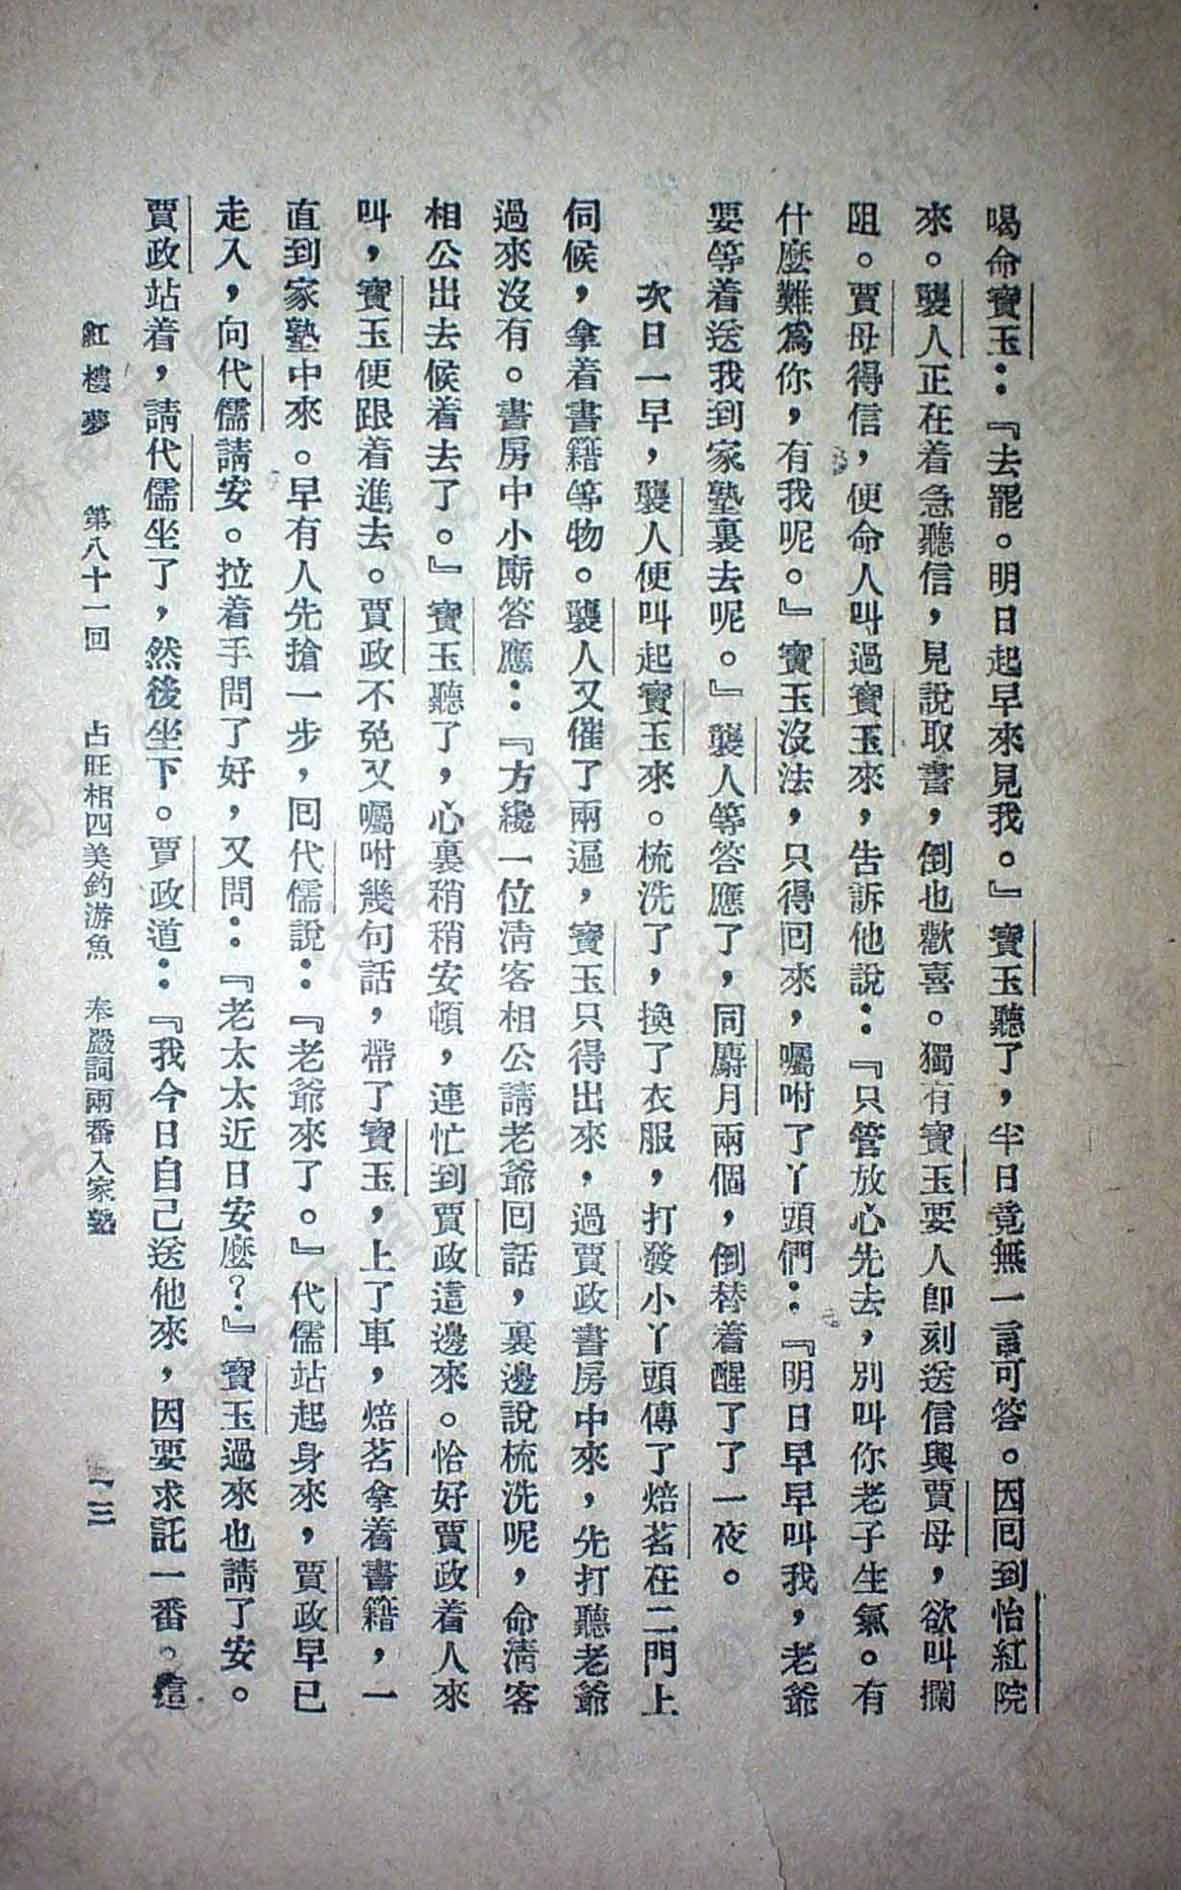 喝命寶玉：『去罷。明日起早來見我。』寶玉聽了，半日竟無一言可答。因回到怡紅院
來。襲人正在着急聽信，見說取書，倒也歡喜。獨有寶玉要人卽刻送信與賈母，欲叫攔
阻。賈母得信，便命人叫過寶玉來，告訴他說：『只管放心先去，別叫你老子生氣。有
什麼難爲你，有我呢。』寶玉沒法，只得回來，囑咐了丫頭們：『明日早早叫我，老爺
要等着送我到家塾裏去呢。』襲人等答應了，同麝月兩個，倒替着醒了了一夜。
次日一早，襲人便叫起寶玉來。梳洗了，換了衣服，打發小丫頭傳了焙茗在二門上
伺候，拿着書籍等物。襲人又催了兩遍，寶玉只得出來，過賈政書房中來，先打聽老爺
過來沒有。書房中小廝答應：『方纔一位淸客相公請老爺回話，裏邊說梳洗呢，命淸客
相公出去候着去了。』寶玉聽了，心裏稍稍安頓，連忙到賈政這邊來。恰好賈政着人來
叫，寶玉便跟着進去。賈政不免又囑咐幾句話，帶了寶玉，上了車，焙茗拿着書籍，一
直到家塾中來。早有人先搶一步，回代儒說：『老爺來了。』代儒站起身來，賈政早已
走入，向代儒請安。拉着手問了好，又問：『老太太近日安麼？』寶玉過來也請了安。
賈政站着，請代儒坐了，然後坐下。賈政道：『我今日自己送他來，因要求託一番。這
紅樓夢　第八十一回　占旺相四美釣游魚　奉嚴詞兩番入家塾　一三